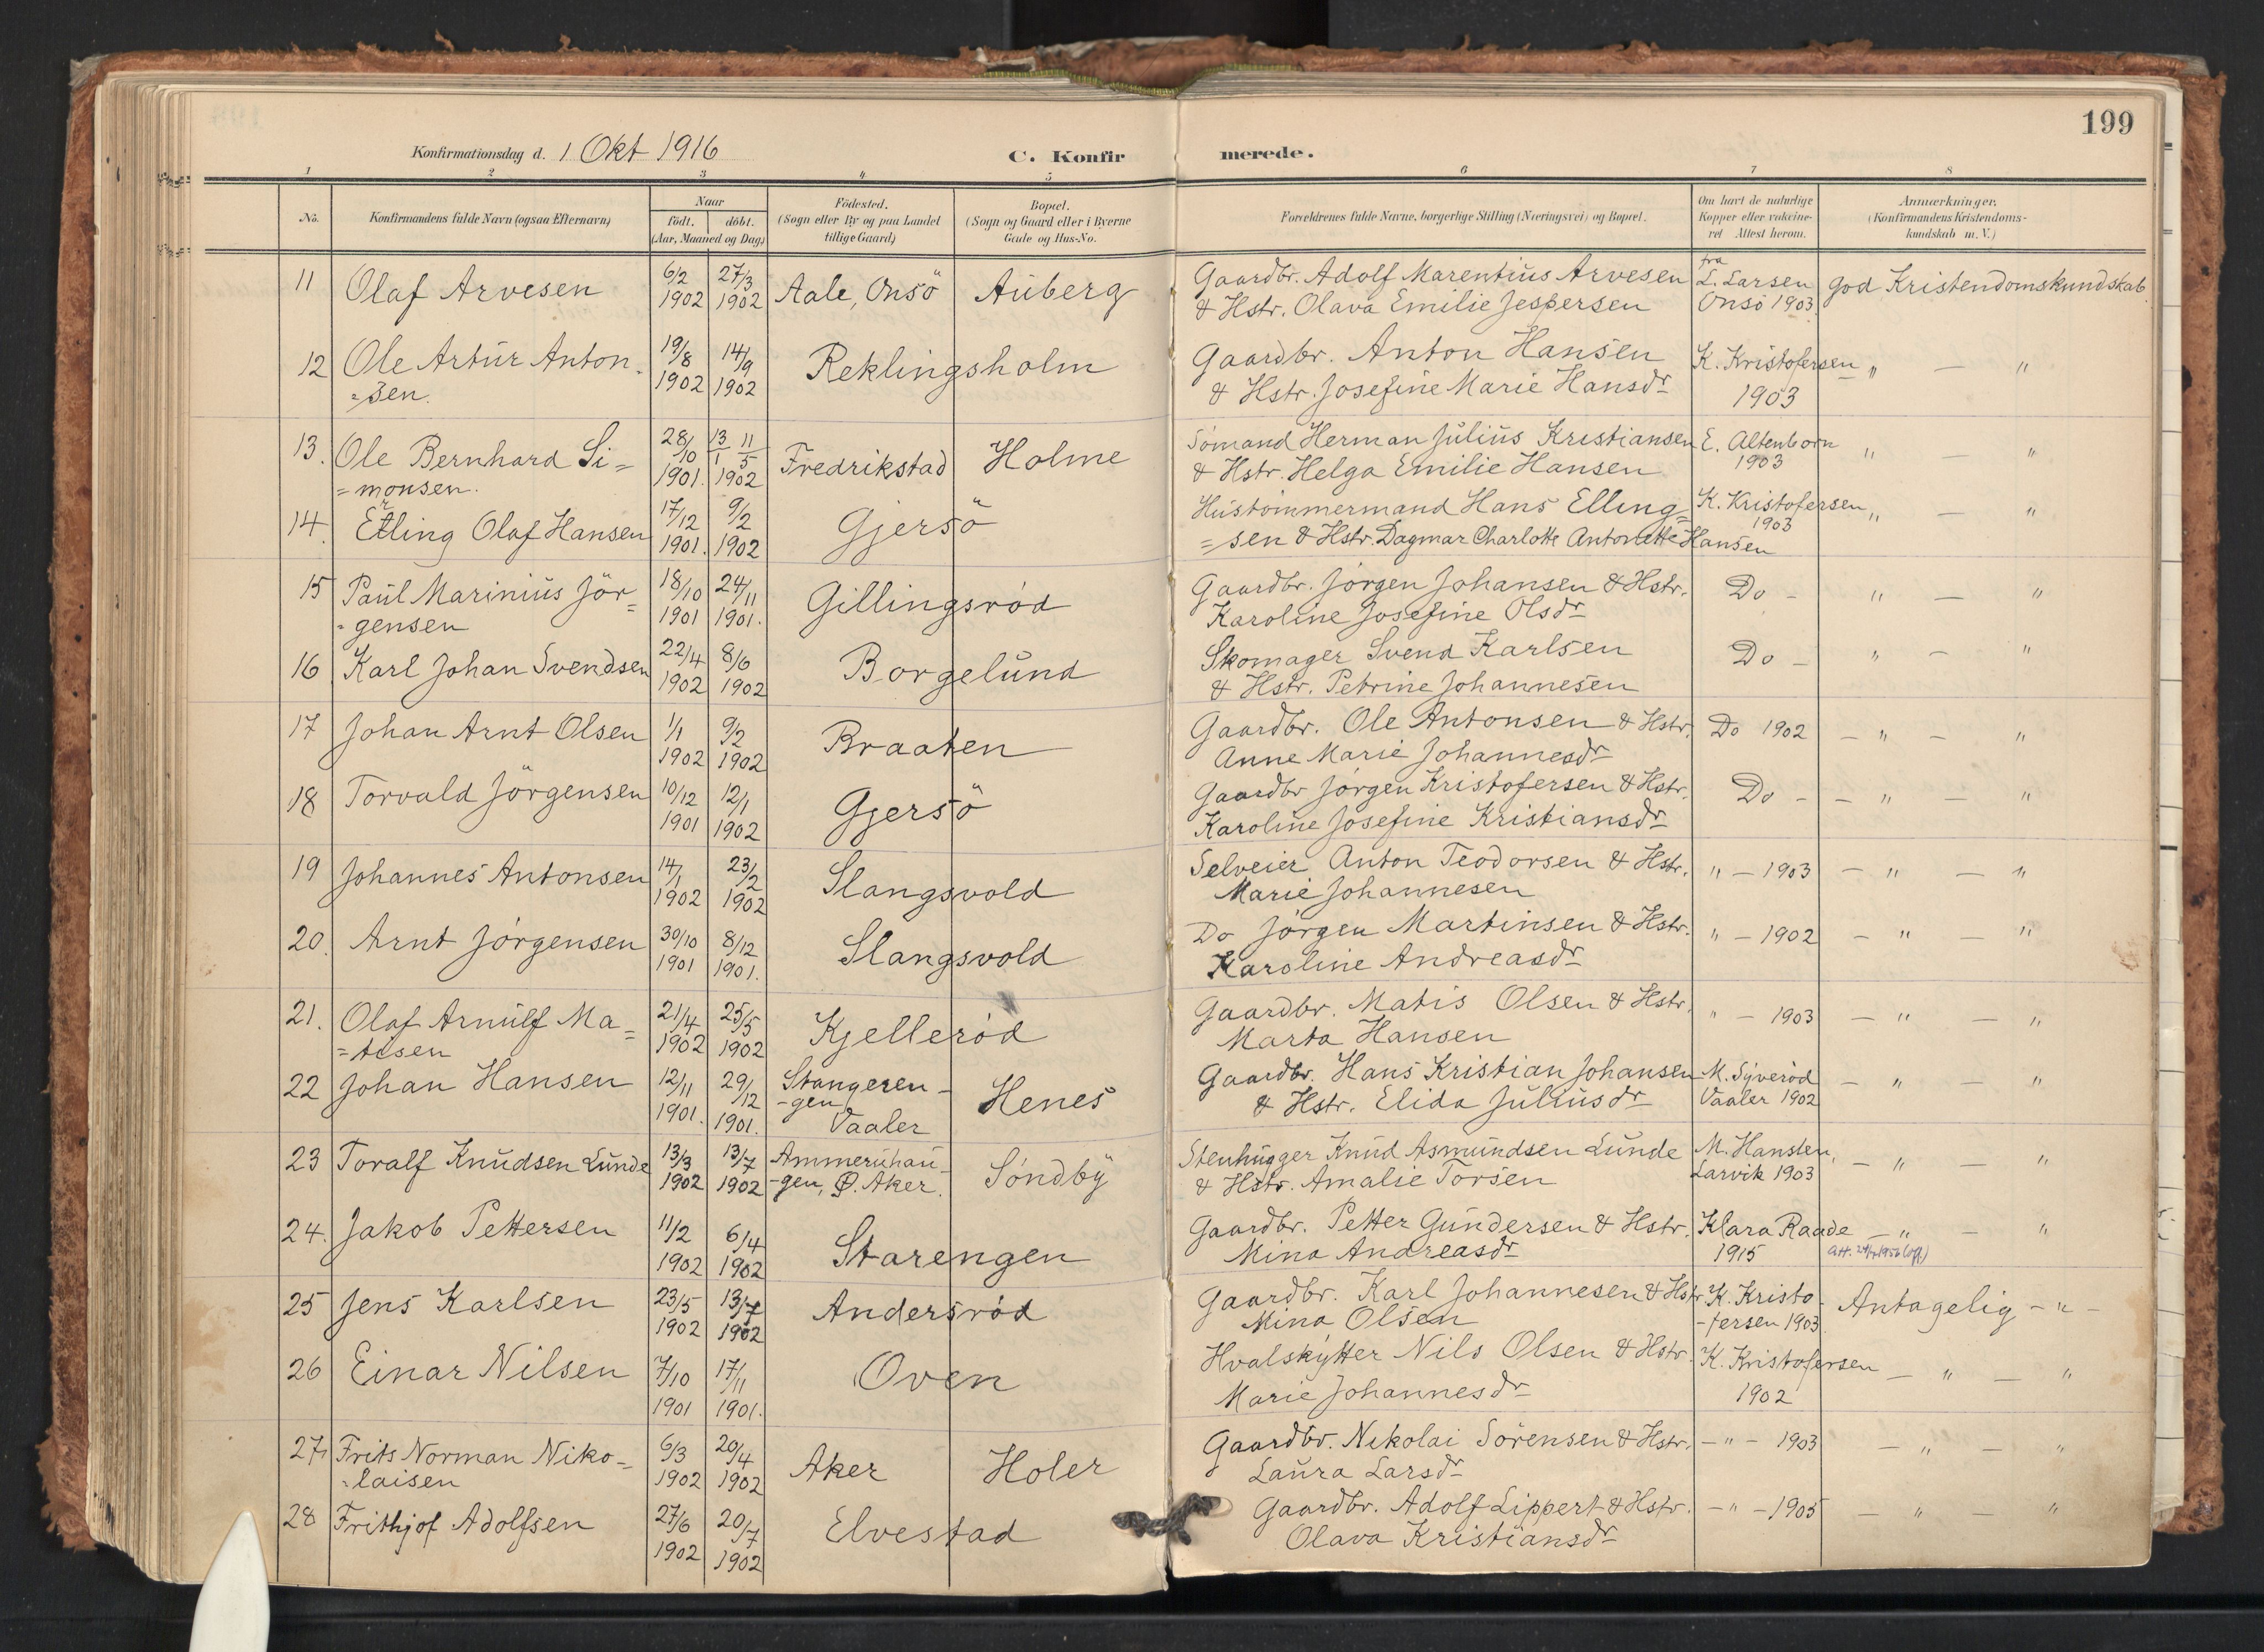 199
Konfirmationsdag d. 1 Okt 1916
C. Konfirmerede.
1 2 3 4 5 6 7 8
No. Konfirmandens fulde Navn (ogsaa Efternavn) Naar født. døbt. (Aar, Maaned og Dag) Fødested. (Sogn eller By og paa Landet tillige Gaard) Bopæl. (Sogn og Gaard eller i Byerne Gade og Hus-No. Forældrenes fulde Navne, borgerlige Stilling (Næringsvei) og Bopæl. Om havt de naturlige Kopper eller vakcineret Attest herom. Anmærkninger. (Konfirmandens Kristendomskundskab m. V.)
11 Olaf Arvesen 6/2 1902 27/3 1902 Aale, Onsö Auberg Gaardbr. Adolf Marentius Arvesen fra L. Larsen god Kristendomskundskab
& Hstr. Olava Emilie Jespersen Onsö 1903
12 Ole Artur Anton- 19/8 1902 14/9 1902 Reklingsholm Gaardbr. Anton Hansen K. Kristofersen " — "
=sen. & Hstr. Josefine Marie Hansdr 1903
13. Ole Bernhard Si= 28/10 1901. 13/1 11/5 1902 Fredrikstad Holme Sömand Herman Julius Kristiansen E. Altenborn " — "
=monsen. & Hstr. Helga Emilie Hansen 1903
14. Erling Olaf Hansen 17/12 1901. 9/2 1902 Gjersö Hustömmermand Hans Elling= K. Kristofersen " — "
=sen & Hstr. Dagmar Charlotte Antonette Hansen 1903
15 Paul Marinius Jör= 18/10 1901 24/11 1901. Gillingsröd Gaardbr. Jörgen Johansen & Hstr. Do - " — "
=gensen Karoline Josefine Olsdr
16 Karl Johan Svendsen 22/4 1902 8/6 1902 Borgelund Skomager Svend Karlsen Do - " — "
& Hstr. Petrine Johannesen
17 Johan Arnt Olsen 1/1 1902 9/2 1902 Braaten Gaardbr. Ole Antonsen & Hstr. Do 1902 — " — "
Anne Marie Johannesdr
18 Torvald Jörgensen 10/12 1901 12/1 1902 Gjersö Gaardbr Jörgen Kristofersen & Hstr. Do - — " — "
Karoline Josefine Kristiansdr
19 Johannes Antonsen 14/1 1902 23/2 1902 Slangsvold Selveier Anton Teodorsen & Hstr. " — 1903 — " — "
Marie Johannesen
20. Arnt Jörgensen 30/10 1901 8/12 1901. Slangsvold Do Jörgen Martinsen & Hstr. " — 1902 — " — "
Karoline Andreasdr
21. Olaf Arnulf Ma= 21/4 1902 25/5 1902 Kjelleröd Gaardbr. Matis Olsen & Hstr. " — 1903 — " — "
=tisen Marta Hansen
22 Johan Hansen 12/11 1901. 29/12 1901. Stangeren- Henes Gaardbr. Hans Kristian Johansen M. Syveröd — " — "
-gen, Vaaler & Hstr. Elida Juliusdr Vaaler 1902
23 Toralf Knudsen Lunde 13/3 1902 13/7 1902 Ammeruhau- Söndby Stenhugger Knud Asmundsen Lunde M. Hansten, — " — "
-gen, Ø. Aker. & Hstr. Amalie Torsen Larvik 1903
24. Jakob Pettersen 11/2 1902 6/4 1902 Starengen Gaardbr. Petter Gundersen & Hstr. Klara Raade — " — "
Mina Andreasdr 1915
25 Jens Karlsen 23/5 1902 13/7 1902 Andersröd Gaardbr. Karl Johannesen & Hstr K. Kristo- Antagelig — " —
Mina Olsen -fersen 1903
26 Einar Nilsen 7/10 1901 17/11 1901. Oven Hvalskytter Nils Olsen & Hstr. K. Kristofersen — " — "
Marie Johannesdr 1902
27 Frits Norman Niko-= 6/3 1902 20/4 1902 Aker Holer Gaardbr. Nikolai Sörensen & Hstr. — " — 1903 — " — "
=laisen Laura Larsdr
28 Frithjof Adolfsen 27/6 1902 20/7 1902 Elvestad Gaardbr. Adolf Lippert & Hstr. — " — 1905 — " — "
Olava Kristiansdr